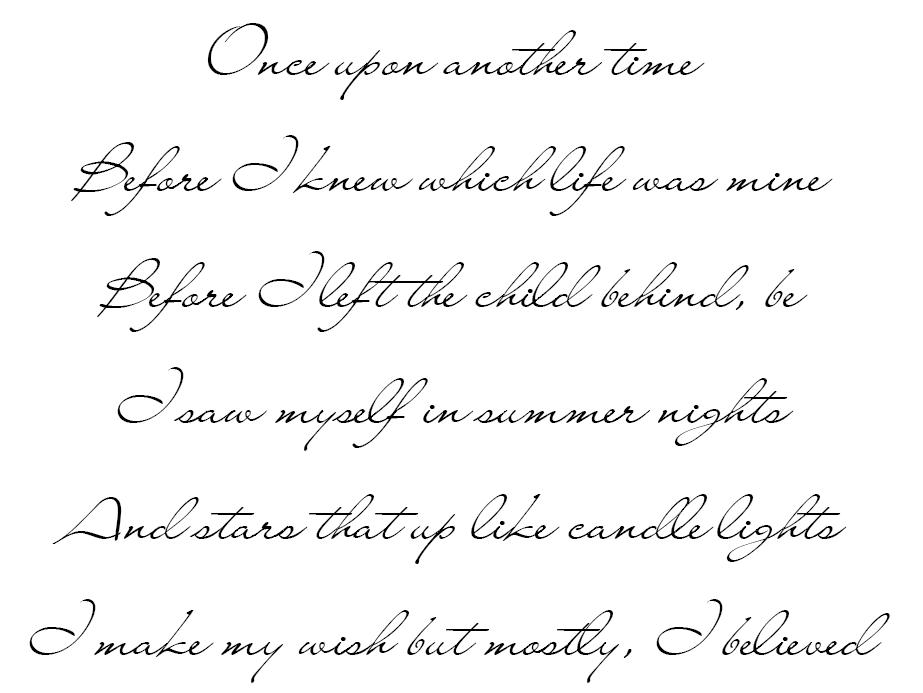 Once upon another time
Before I knew which life was mine
Before I left the child behind, be
I saw myself in summer nights
And stars that up like candle lights
I make my wish but mostly, I believed